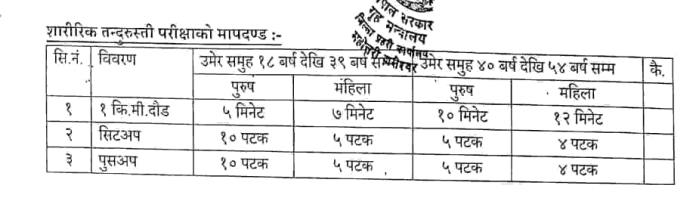 नेपाल सरकार
गृह मन्त्रालय
जिल्ला प्रहरी कार्यालय
शारीरिक तन्दुरुस्ती परीक्षाको मापदण्ड :-
सि.नं. विवरण उमेर समुह १८ बर्ष देखि ३९ बर्ष सम्म उमेर समुह ४० बर्ष देखि ५४ बर्ष सम्म कै.
पुरुष महिला पुरुष महिला
१ १ कि.मी.दौड ५ मिनेट ७ मिनेट १० मिनेट १२ मिनेट
२ सिटअप १० पटक ५ पटक ५ पटक ४ पटक
३ पुसअप १० पटक ५ पटक ५ पटक ४ पटक